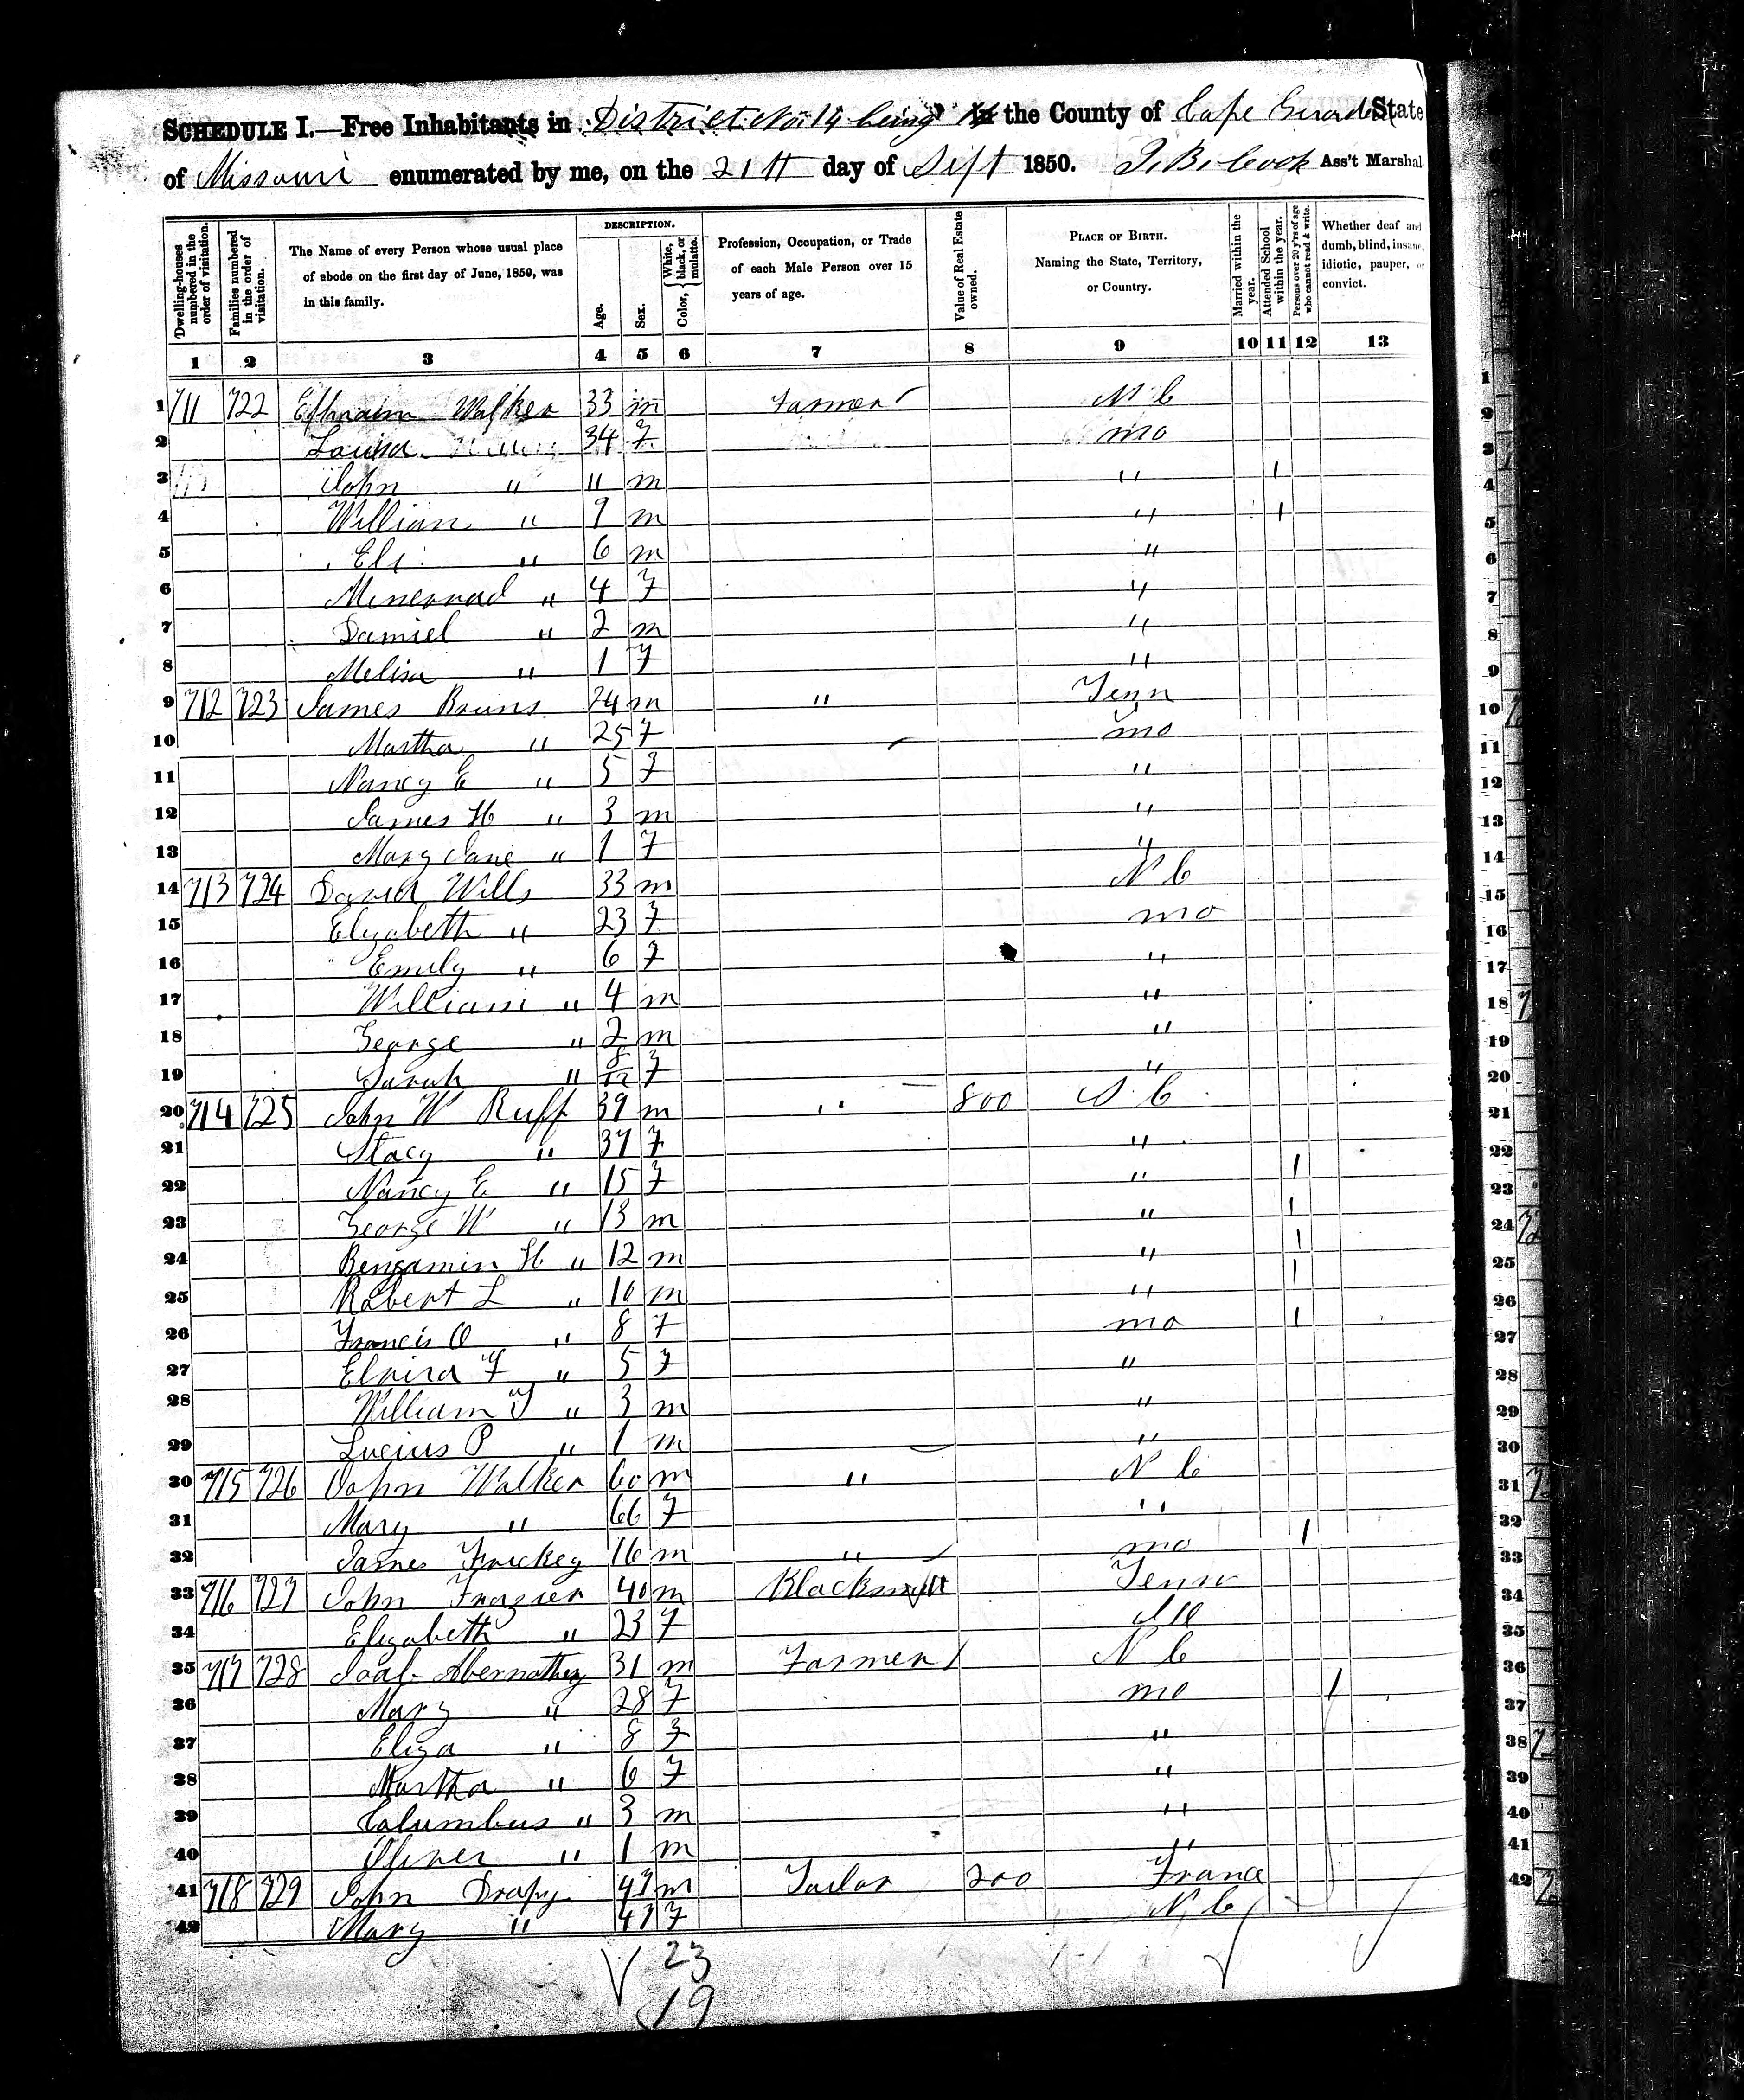 SCHEDULE I.—Free Inhabitants in District No 14 being in the County of Cape Girardeau State
of Missouri enumerated by me, on the 21st day of Sept 1850. Ass't Marshal
Dwelling-houses numbered in the order of visitation.
Families numbered in the order of visitation.
The Name of every Person whose usual place of abode on the first day of June, 1850, was in this family.
DESCRIPTION.
Age.
Sex.
Color, White, black, or mulatto.
Profession, Occupation, or Trade of each Male Person over 15 years of age.
Value of Real Estate owned.
PLACE OF BIRTH. Naming the State, Territory, or Country.
Married within the year.
Attended School within the year.
Persons over 20 y'rs of age who cannot read & write.
Whether deaf and dumb, blind, insane, idiotic, pauper, or convict.
1 2 3 4 5 6 7 8 9 10 11 12 13
1 711 722 Ephraim Walker 33 m Farmer N C
2 34 F mo
3 John " 11 m " 1
4 William " 9 m " 1
5 Eli " 6 m "
6 " 4 F "
7 Daniel " 2 m "
8 Melisa " 1 F "
9 712 723 James 24 m " Tenn
10 Martha " 25 F mo
11 Nancy E " 5 F "
12 James H " 3 m "
13 Mary Jane " 1 F "
14 713 724 David Wills 33 m N C
15 Elizabeth " 23 F mo
16 Emily " 6 F "
17 William " 4 m "
18 George " 2 m "
19 Sarah " 8/12 F "
20 714 725 John W Ruff 39 m " 800 S C
21 Stacy " 37 F "
22 Nancy E " 15 F " 1
23 George W " 13 m " 1
24 Bengamin H " 12 m " 1
25 Robert L " 10 m " 1
26 Francis O " 8 F mo 1
27 Elvira F " 5 F "
28 William T " 3 m "
29 Lucius P " 1 m "
30 715 726 John Walker 60 m " N C
31 Mary " 66 F "
32 James 16 m " mo 1
33 716 727 John Frazier 40 m Blacksmith Tenn
34 Elizabeth " 23 F Ill
35 717 728 Abernathy 31 m Farmer N C
36 Mary " 28 F mo 1
37 Eliza " 8 F "
38 Martha " 6 F "
39 Columbus " 3 m "
40 Oliver " 1 m "
41 718 729 John 47 m Tailor 200 France
42 Mary " 47 F N C
23
19